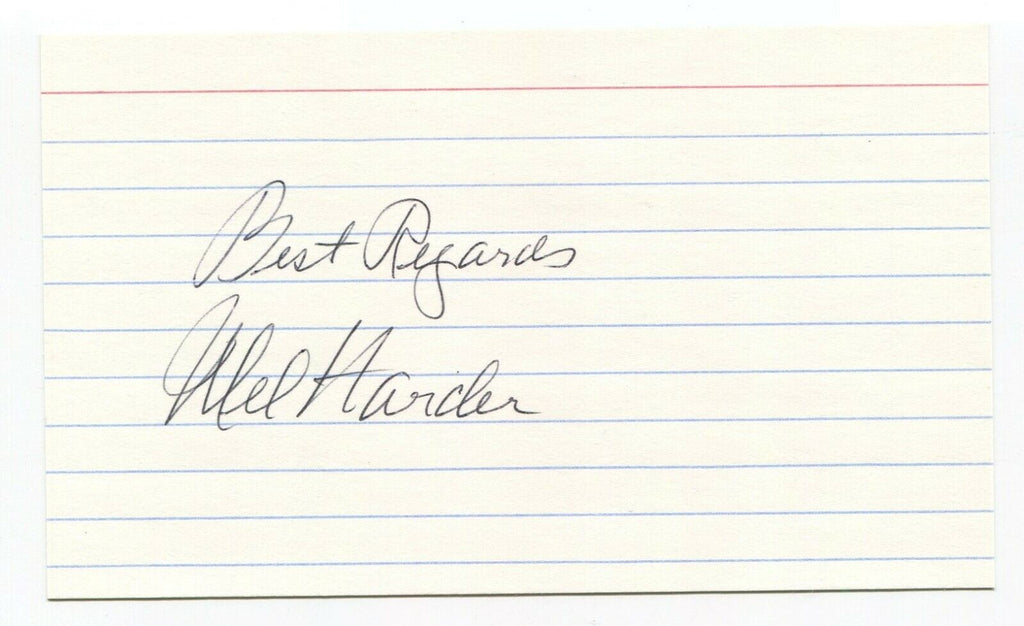 Best Regards
Mel Harder